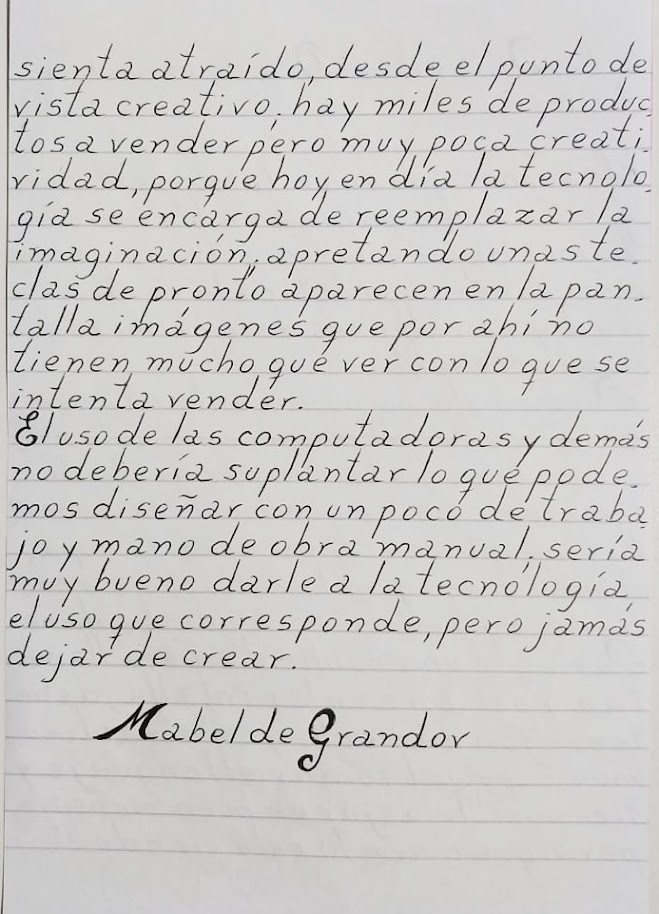 sienta atraído, desde el punto de
vista creativo. hay miles de produc_
tos a vender pero muy poca creati_
vidad, porque hoy en día la tecnolo_
gía se encarga de reemplazar la
imaginación, apretando unas te_
clas de pronto aparecen en la pan_
talla imágenes que por ahí no
tienen mucho que ver con lo que se
intenta vender.
El uso de las computadoras y demás
no debería suplantar lo que pode_
mos diseñar con un poco de traba_
jo y mano de obra manual, sería
muy bueno darle a la tecnología
el uso que corresponde, pero jamás
dejar de crear.
Mabel de Grandov